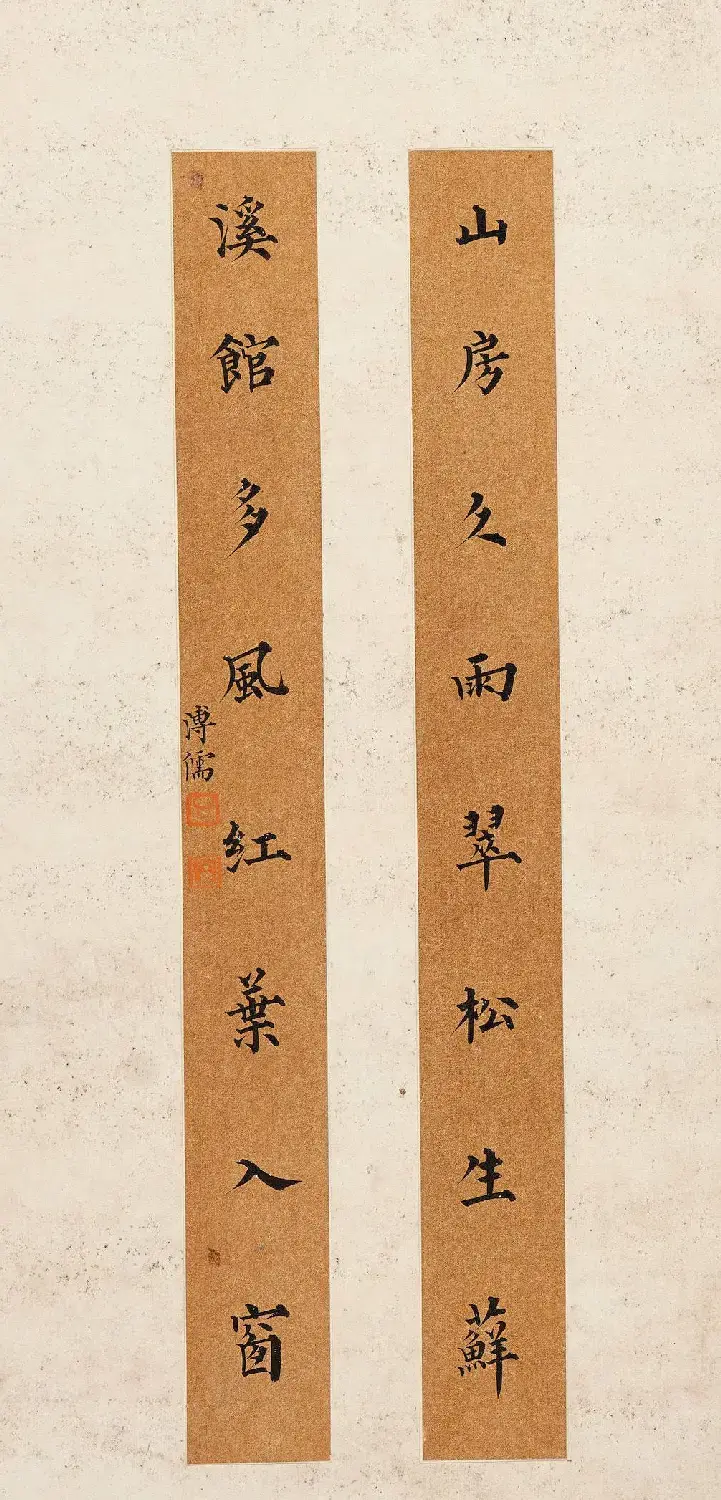 山房久雨翠松生蘚
溪館多風紅葉入窗
溥儒